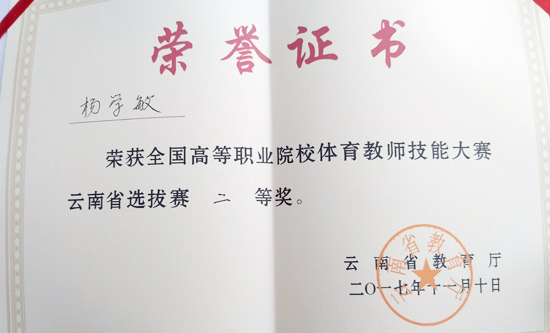 荣誉证书
杨学敏
荣获全国高等职业院校体育教师技能大赛
云南省选拔赛 二 等奖。
云南省教育厅
云南省教育厅
二〇一七年十一月十日